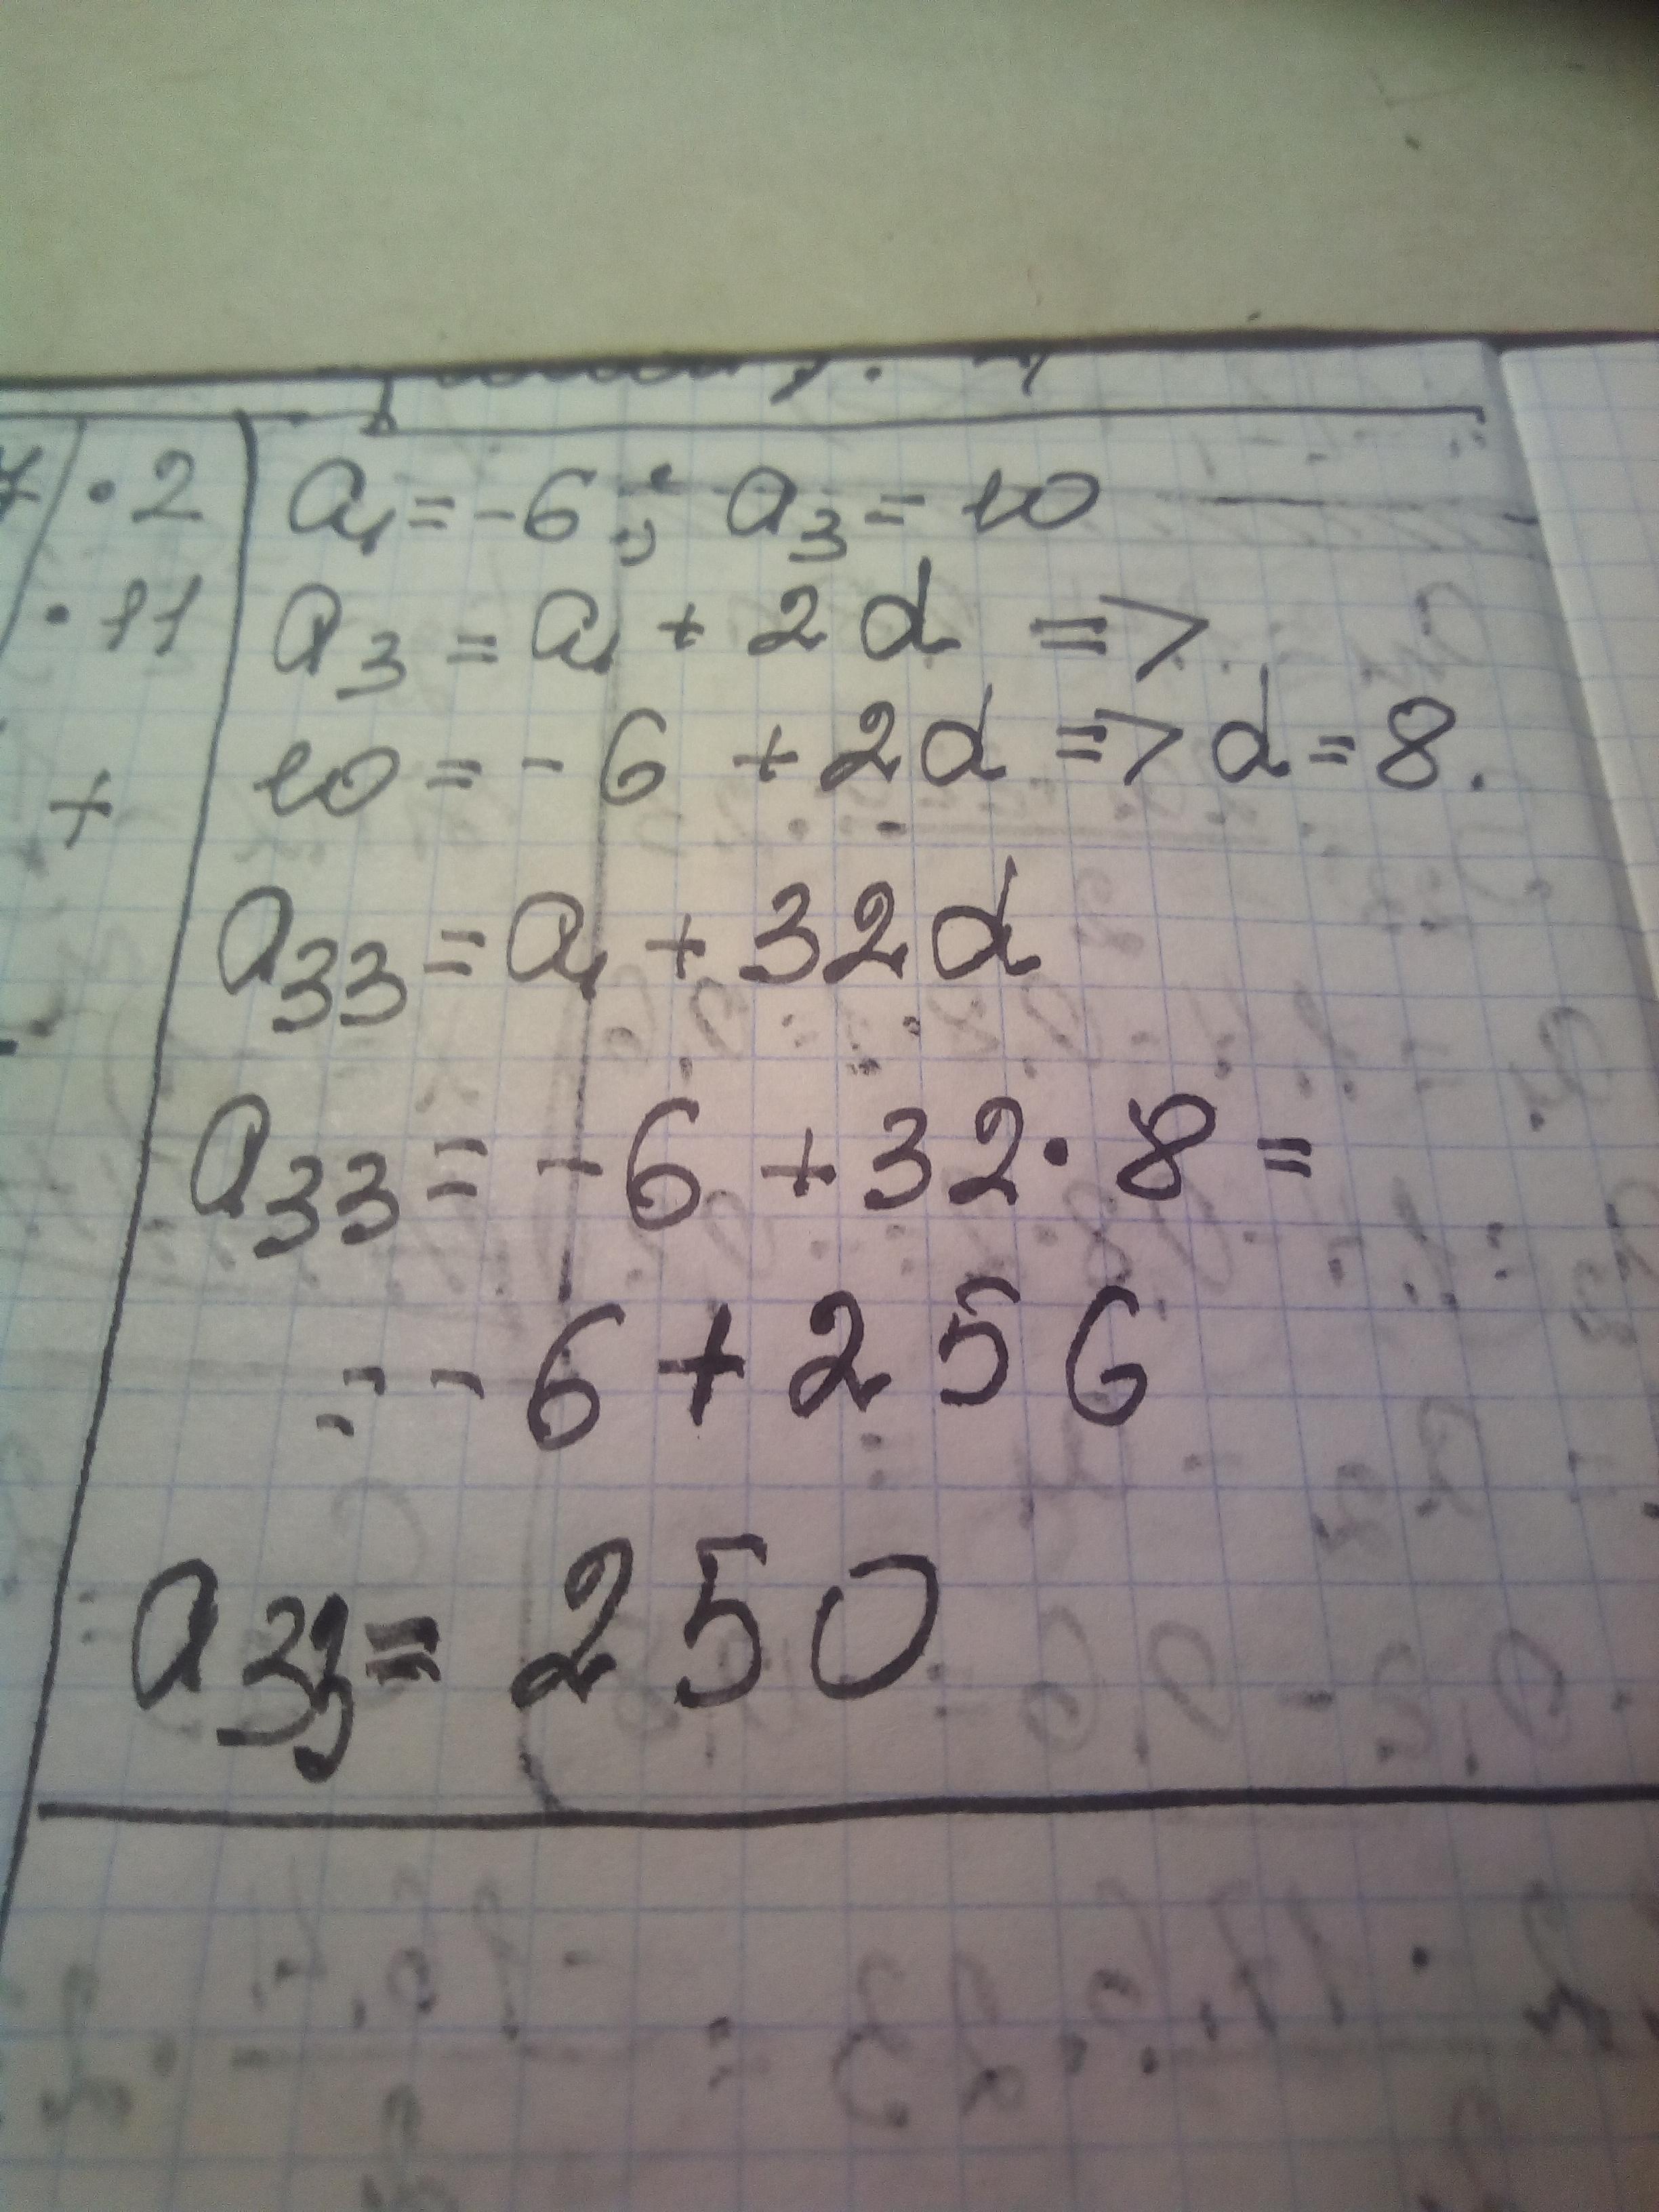 · 2
· 11
+
a₁ = -6; a₃ = 10
a₃ = a₁ + 2d =>
10 = -6 + 2d => d = 8.
a₃₃ = a₁ + 32d
a₃₃ = -6 + 32 · 8 =
= -6 + 256
a₃₃ = 250